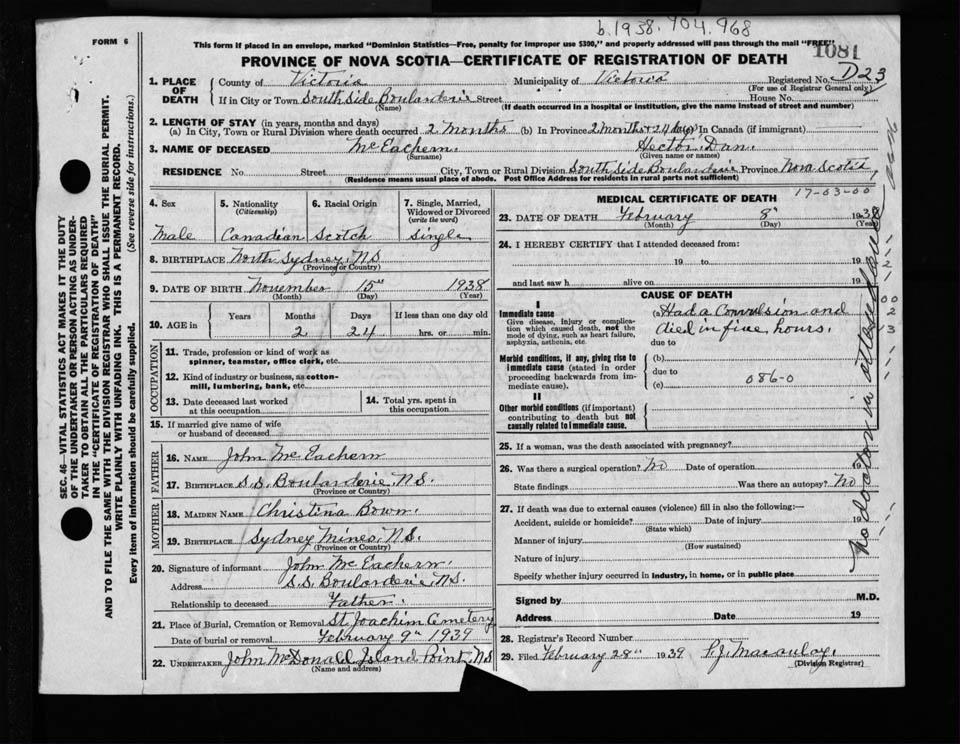 b.1938.704.968
FORM 6
This form if placed in an envelope, marked "Dominion Statistics—Free, penalty for improper use $300," and properly addressed will pass through the mail "FREE"
1081
PROVINCE OF NOVA SCOTIA—CERTIFICATE OF REGISTRATION OF DEATH
1. PLACE OF DEATH County of Victoria Municipality of Victoria Registered No. D23
(For use of Registrar General only)
If in City or Town South Side Boularderie Street House No.
(Name) (If death occurred in a hospital or institution, give the name instead of street and number)
2. LENGTH OF STAY (in years, months and days)
(a) In City, Town or Rural Division where death occurred 2 months (b) In Province 2 months + 24 days (c) In Canada (if immigrant)
3. NAME OF DECEASED McEachern. Hector Dan.
(Surname) (Given name or names)
RESIDENCE No. Street City, Town or Rural Division South Side Boularderie Province Nova Scotia
(Residence means usual place of abode. Post Office Address for residents in rural parts not sufficient)
4. Sex
5. Nationality
(Citizenship)
6. Racial Origin
7. Single, Married, Widowed or Divorced
(write the word)
Male Canadian Scotch Single
8. BIRTHPLACE North Sydney, N.S.
(Province or Country)
9. DATE OF BIRTH November 15th 1938
(Month) (Day) (Year)
10. AGE in Years Months Days If less than one day old
2 24 hrs. or min.
OCCUPATION
11. Trade, profession or kind of work as
spinner, teamster, office clerk, etc.
12. Kind of industry or business, as cotton-
mill, lumbering, bank, etc.
13. Date deceased last worked
at this occupation
14. Total yrs. spent in
this occupation
15. If married give name of wife
or husband of deceased
FATHER
16. NAME John McEachern
17. BIRTHPLACE S.S. Boularderie, N.S.
(Province or Country)
MOTHER
18. MAIDEN NAME Christina Bown.
19. BIRTHPLACE Sydney Mines, N.S.
(Province or Country)
20. Signature of informant John McEachern.
Address S.S. Boularderie, N.S.
Relationship to deceased Father.
21. Place of Burial, Cremation or Removal St. Joachim Cemetery
Date of burial or removal February 9th 1939
22. UNDERTAKER John McDonald Island Point, N.S.
(Name and address)
17-03-00
MEDICAL CERTIFICATE OF DEATH
23. DATE OF DEATH February 8th 1938
(Month) (Day) (Year)
24. I HEREBY CERTIFY that I attended deceased from:
19 to 19
and last saw h alive on 19
CAUSE OF DEATH
I
Immediate cause
Give disease, injury or complica-
tion which caused death, not the
mode of dying, such as heart failure,
asphyxia, asthenia, etc.
(a) Had a Convulsion and
died in five hours.
due to
Morbid conditions, if any, giving rise to
immediate cause (stated in order
proceeding backwards from im-
mediate cause).
(b)
due to
(c) 086-0
II
Other morbid conditions (if important)
contributing to death but not
causally related to immediate cause.
25. If a woman, was the death associated with pregnancy?
26. Was there a surgical operation? No Date of operation 19
State findings Was there an autopsy? No
27. If death was due to external causes (violence) fill in also the following:—
Accident, suicide or homicide? Date of injury 19
(State which)
Manner of injury
(How sustained)
Nature of injury
Specify whether injury occurred in industry, in home, or in public place
Signed by M.D.
Address Date 19
28. Registrar's Record Number
29. Filed February 28th 1939 P.J. Macaulay.
(Division Registrar)
No doctor in attendance
SEC. 46—VITAL STATISTICS ACT MAKES IT THE DUTY
OF THE UNDERTAKER OR PERSON ACTING AS UNDER-
TAKER TO OBTAIN ALL THE PARTICULARS REQUIRED
IN THE "CERTIFICATE OF REGISTRATION OF DEATH"
AND TO FILE THE SAME WITH THE DIVISION REGISTRAR WHO SHALL ISSUE THE BURIAL PERMIT.
WRITE PLAINLY WITH UNFADING INK. THIS IS A PERMANENT RECORD.
Every item of information should be carefully supplied. (See reverse side for instructions.)